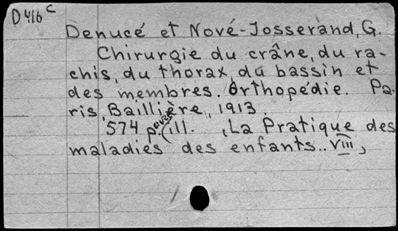 D416 c
Denucé et Nové-Josserand, G.
Chirurgie du crâne, du ra-
chis, du thorax, du bassin et
des membres. Orthopédie. Pa-
ris, Baillière, 1913.
574 p. ill. (La Pratique des
maladies des enfants.. VIII,